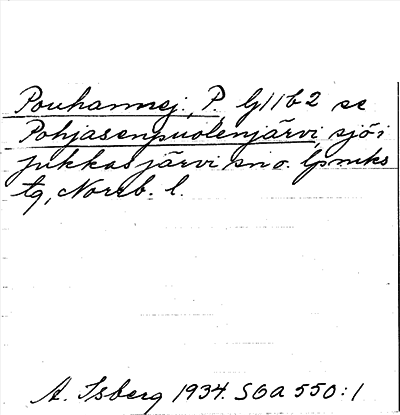 Pouhannej, P. G11b2 se
Pohjasenpuolenjärvi, sjö i
Jukkasjärvi sn o. lpmks
tg, Norrb. l.
A. Isberg 1934. SOA 550:1